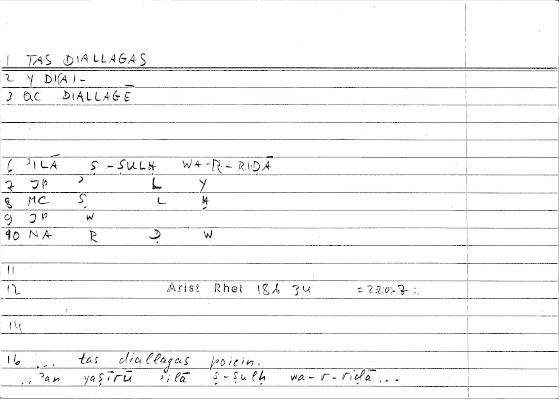 1 TAS DIALLAGAS
2 Y DIAI-
3 QC DIALLAGĒ
6 ʾILĀ Ṣ-ṢULḤ WA-R-RIḌĀ
7 JP ʾ L Y
8 MC Ṣ L Ḥ
9 JP W
10 NA R Ḍ W
11
12 Arist Rhet 18b 34
14
16 ... tas diallagas poiein.
...ʾan yaṣīrū ʾilā ṣ-ṣulḥ wa-r-riḍā...